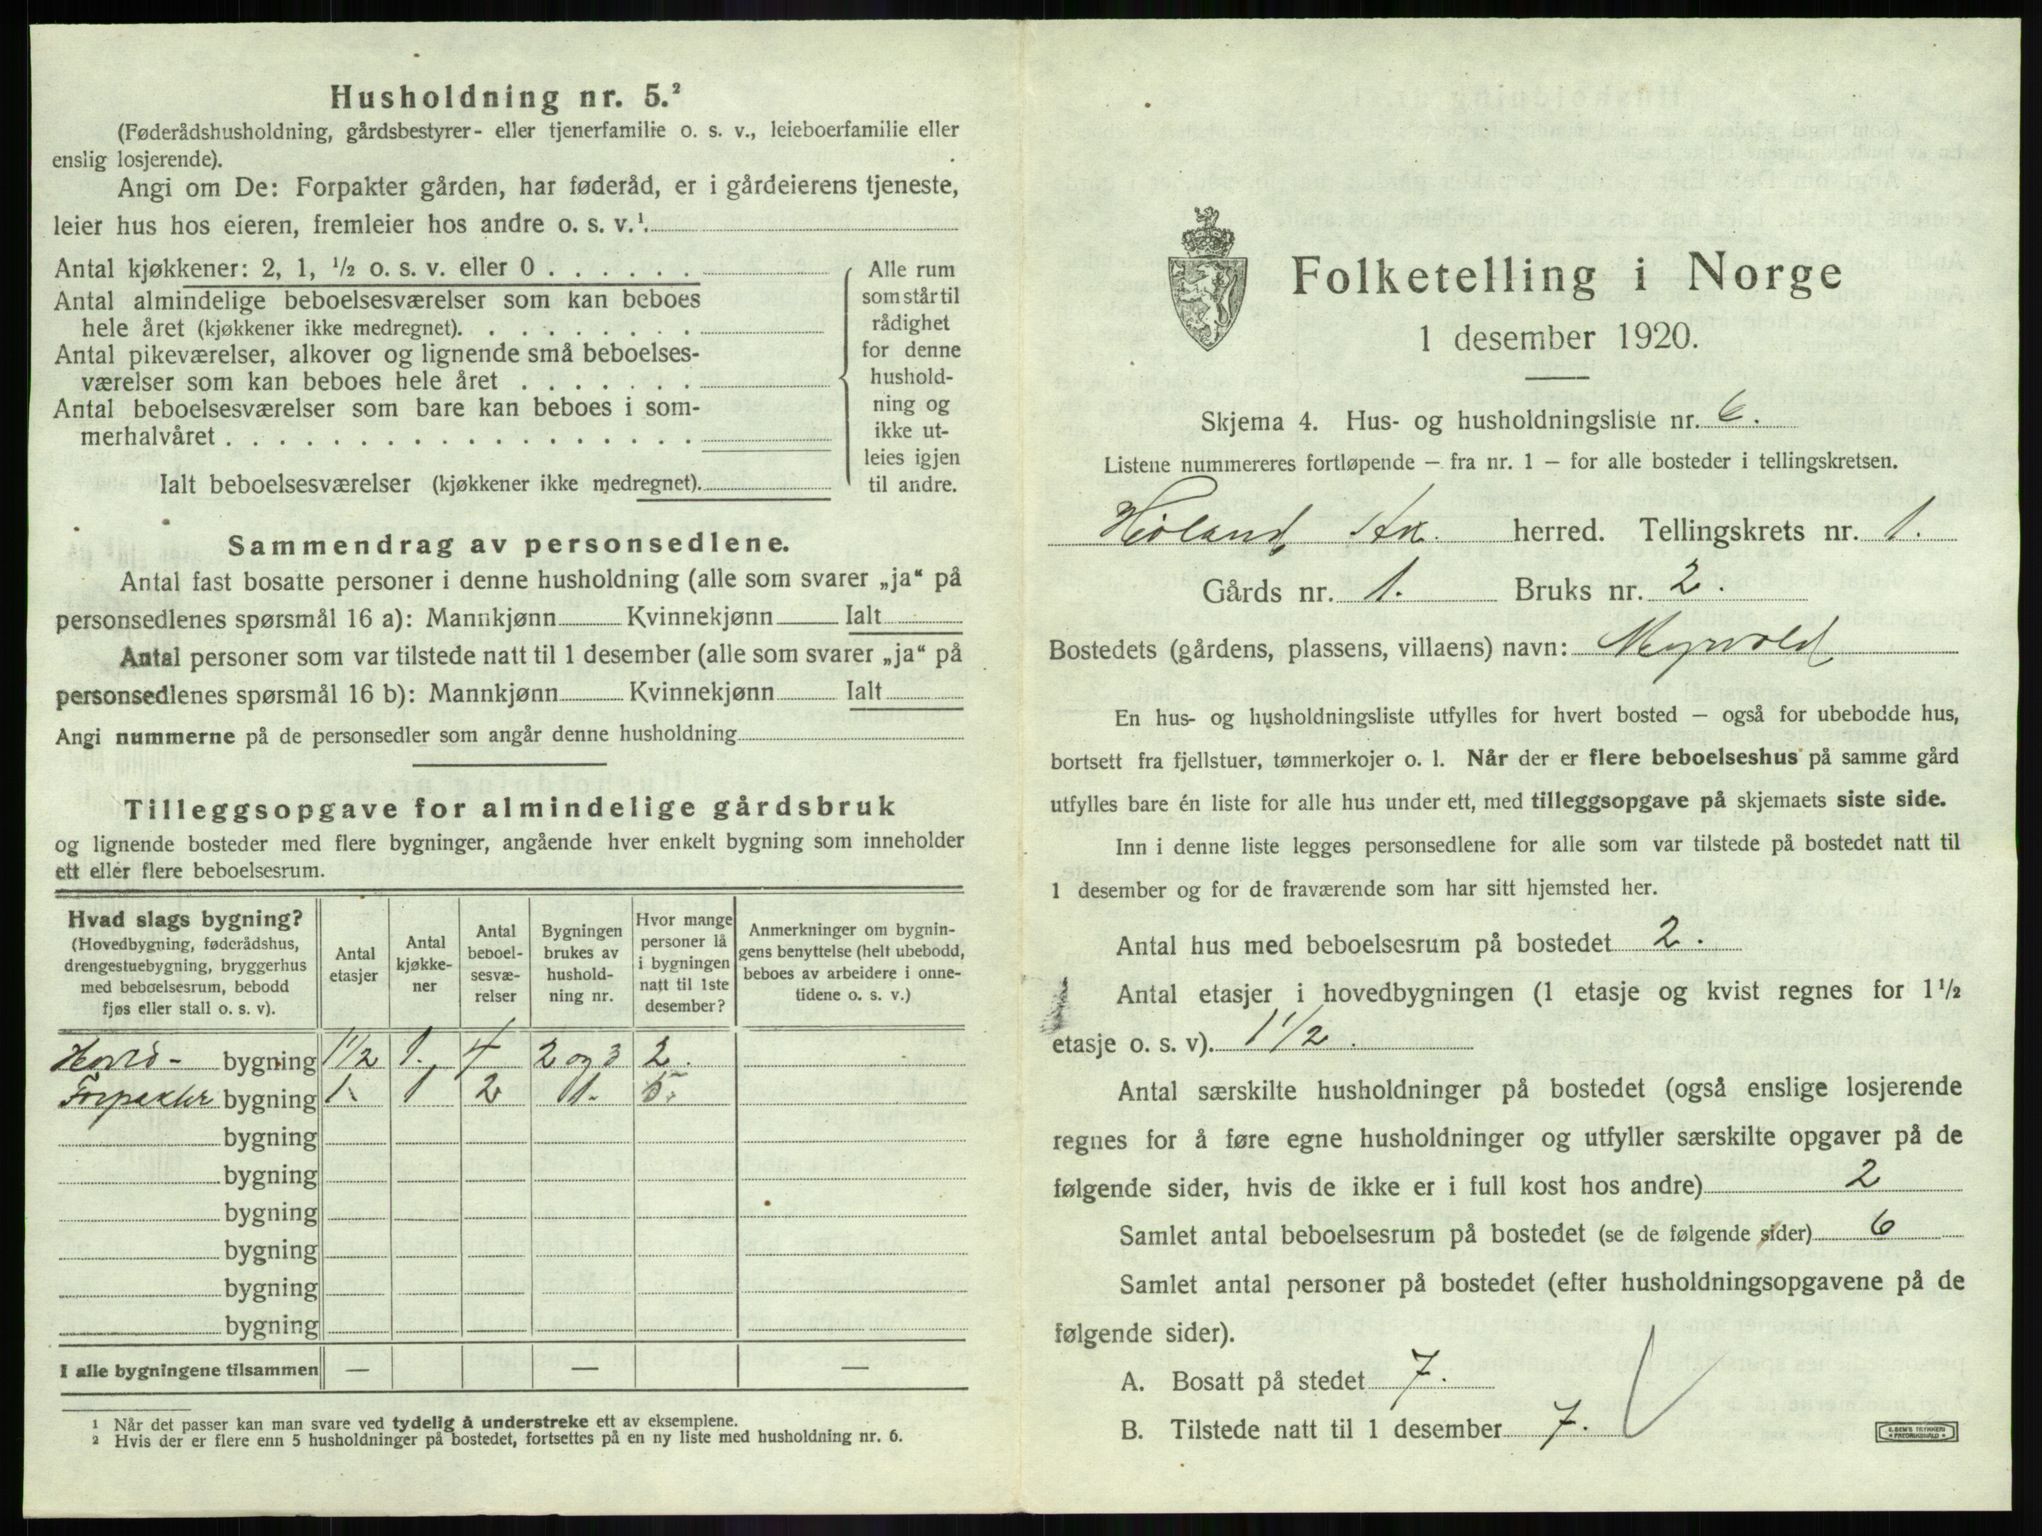 Husholdning nr. 5.²
(Føderådshusholdning, gårdsbestyrer- eller tjenerfamilie o. s. v., leieboerfamilie eller
enslig losjerende).
Angi om De: Forpakter gården, har føderåd, er i gårdeierens tjeneste,
leier hus hos eieren, fremleier hos andre o. s. v.¹
Antal kjøkkener: 2, 1, ½ o. s. v. eller 0 . . . . . .
Antal almindelige beboelsesværelser som kan beboes
hele året (kjøkkener ikke medregnet). . . . . . . . .
Antal pikeværelser, alkover og lignende små beboelses-
værelser som kan beboes hele året . . . . . . .
Antal beboelsesværelser som bare kan beboes i som-
merhalvåret . . . . . . . . . . . . . . . . . .
Ialt beboelsesværelser (kjøkkener ikke medregnet).
Alle rum
som står til
rådighet
for denne
hushold-
ning og
ikke ut-
leies igjen
til andre.
Sammendrag av personsedlene.
Antal fast bosatte personer i denne husholdning (alle som svarer „ja“ på
personsedlenes spørsmål 16 a): Mannkjønn Kvinnekjønn Ialt
Antal personer som var tilstede natt til 1 desember (alle som svarer „ja“ på
personsedlenes spørsmål 16 b): Mannkjønn Kvinnekjønn Ialt
Angi nummerne på de personsedler som angår denne husholdning
Tilleggsopgave for almindelige gårdsbruk
og lignende bosteder med flere bygninger, angående hver enkelt bygning som inneholder
ett eller flere beboelsesrum.
Hvad slags bygning?
(Hovedbygning, føderådshus,
drengestuebygning, bryggerhus
med beboelsesrum, bebodd
fjøs eller stall o. s. v).
Antal
etasjer
Antal
kjøkke-
ner
Antal
beboel-
sesvæ-
relser
Bygningen
brukes av
hushold-
ning nr.
Hvor mange
personer lå
i bygningen
natt til 1ste
desember?
Anmerkninger om bygnin-
gens benyttelse (helt ubebodd,
beboes av arbeidere i onne-
tidene o. s. v.)
Hoved- bygning 1½ 1. 4 2 og 3 2.
Forpakter bygning 1. 1 2 1. 5.
bygning
bygning
bygning
bygning
bygning
bygning
I alle bygningene tilsammen — — —
¹ Når det passer kan man svare ved tydelig å understreke ett av eksemplene.
² Hvis der er flere enn 5 husholdninger på bostedet, fortsettes på en ny liste med husholdning nr. 6.
Folketelling i Norge
1 desember 1920.
Skjema 4. Hus- og husholdningsliste nr. 6.
Listene nummereres fortløpende — fra nr. 1 — for alle bosteder i tellingskretsen.
Høland, Ak. herred. Tellingskrets nr. 1.
Gårds nr. 1. Bruks nr. 2.
Bostedets (gårdens, plassens, villaens) navn: Myrvold
En hus- og husholdningsliste utfylles for hvert bosted — også for ubebodde hus,
bortsett fra fjellstuer, tømmerkojer o. l. Når der er flere beboelseshus på samme gård
utfylles bare én liste for alle hus under ett, med tilleggsopgave på skjemaets siste side.
Inn i denne liste legges personsedlene for alle som var tilstede på bostedet natt til
1 desember og for de fraværende som har sitt hjemsted her.
Antal hus med beboelsesrum på bostedet 2.
Antal etasjer i hovedbygningen (1 etasje og kvist regnes for 1½
etasje o. s. v). 1½.
Antal særskilte husholdninger på bostedet (også enslige losjerende
regnes for å føre egne husholdninger og utfyller særskilte opgaver på de
følgende sider, hvis de ikke er i full kost hos andre) 2
Samlet antal beboelsesrum på bostedet (se de følgende sider) 6
Samlet antal personer på bostedet (efter husholdningsopgavene på de
følgende sider).
A. Bosatt på stedet 7.
B. Tilstede natt til 1 desember 7.